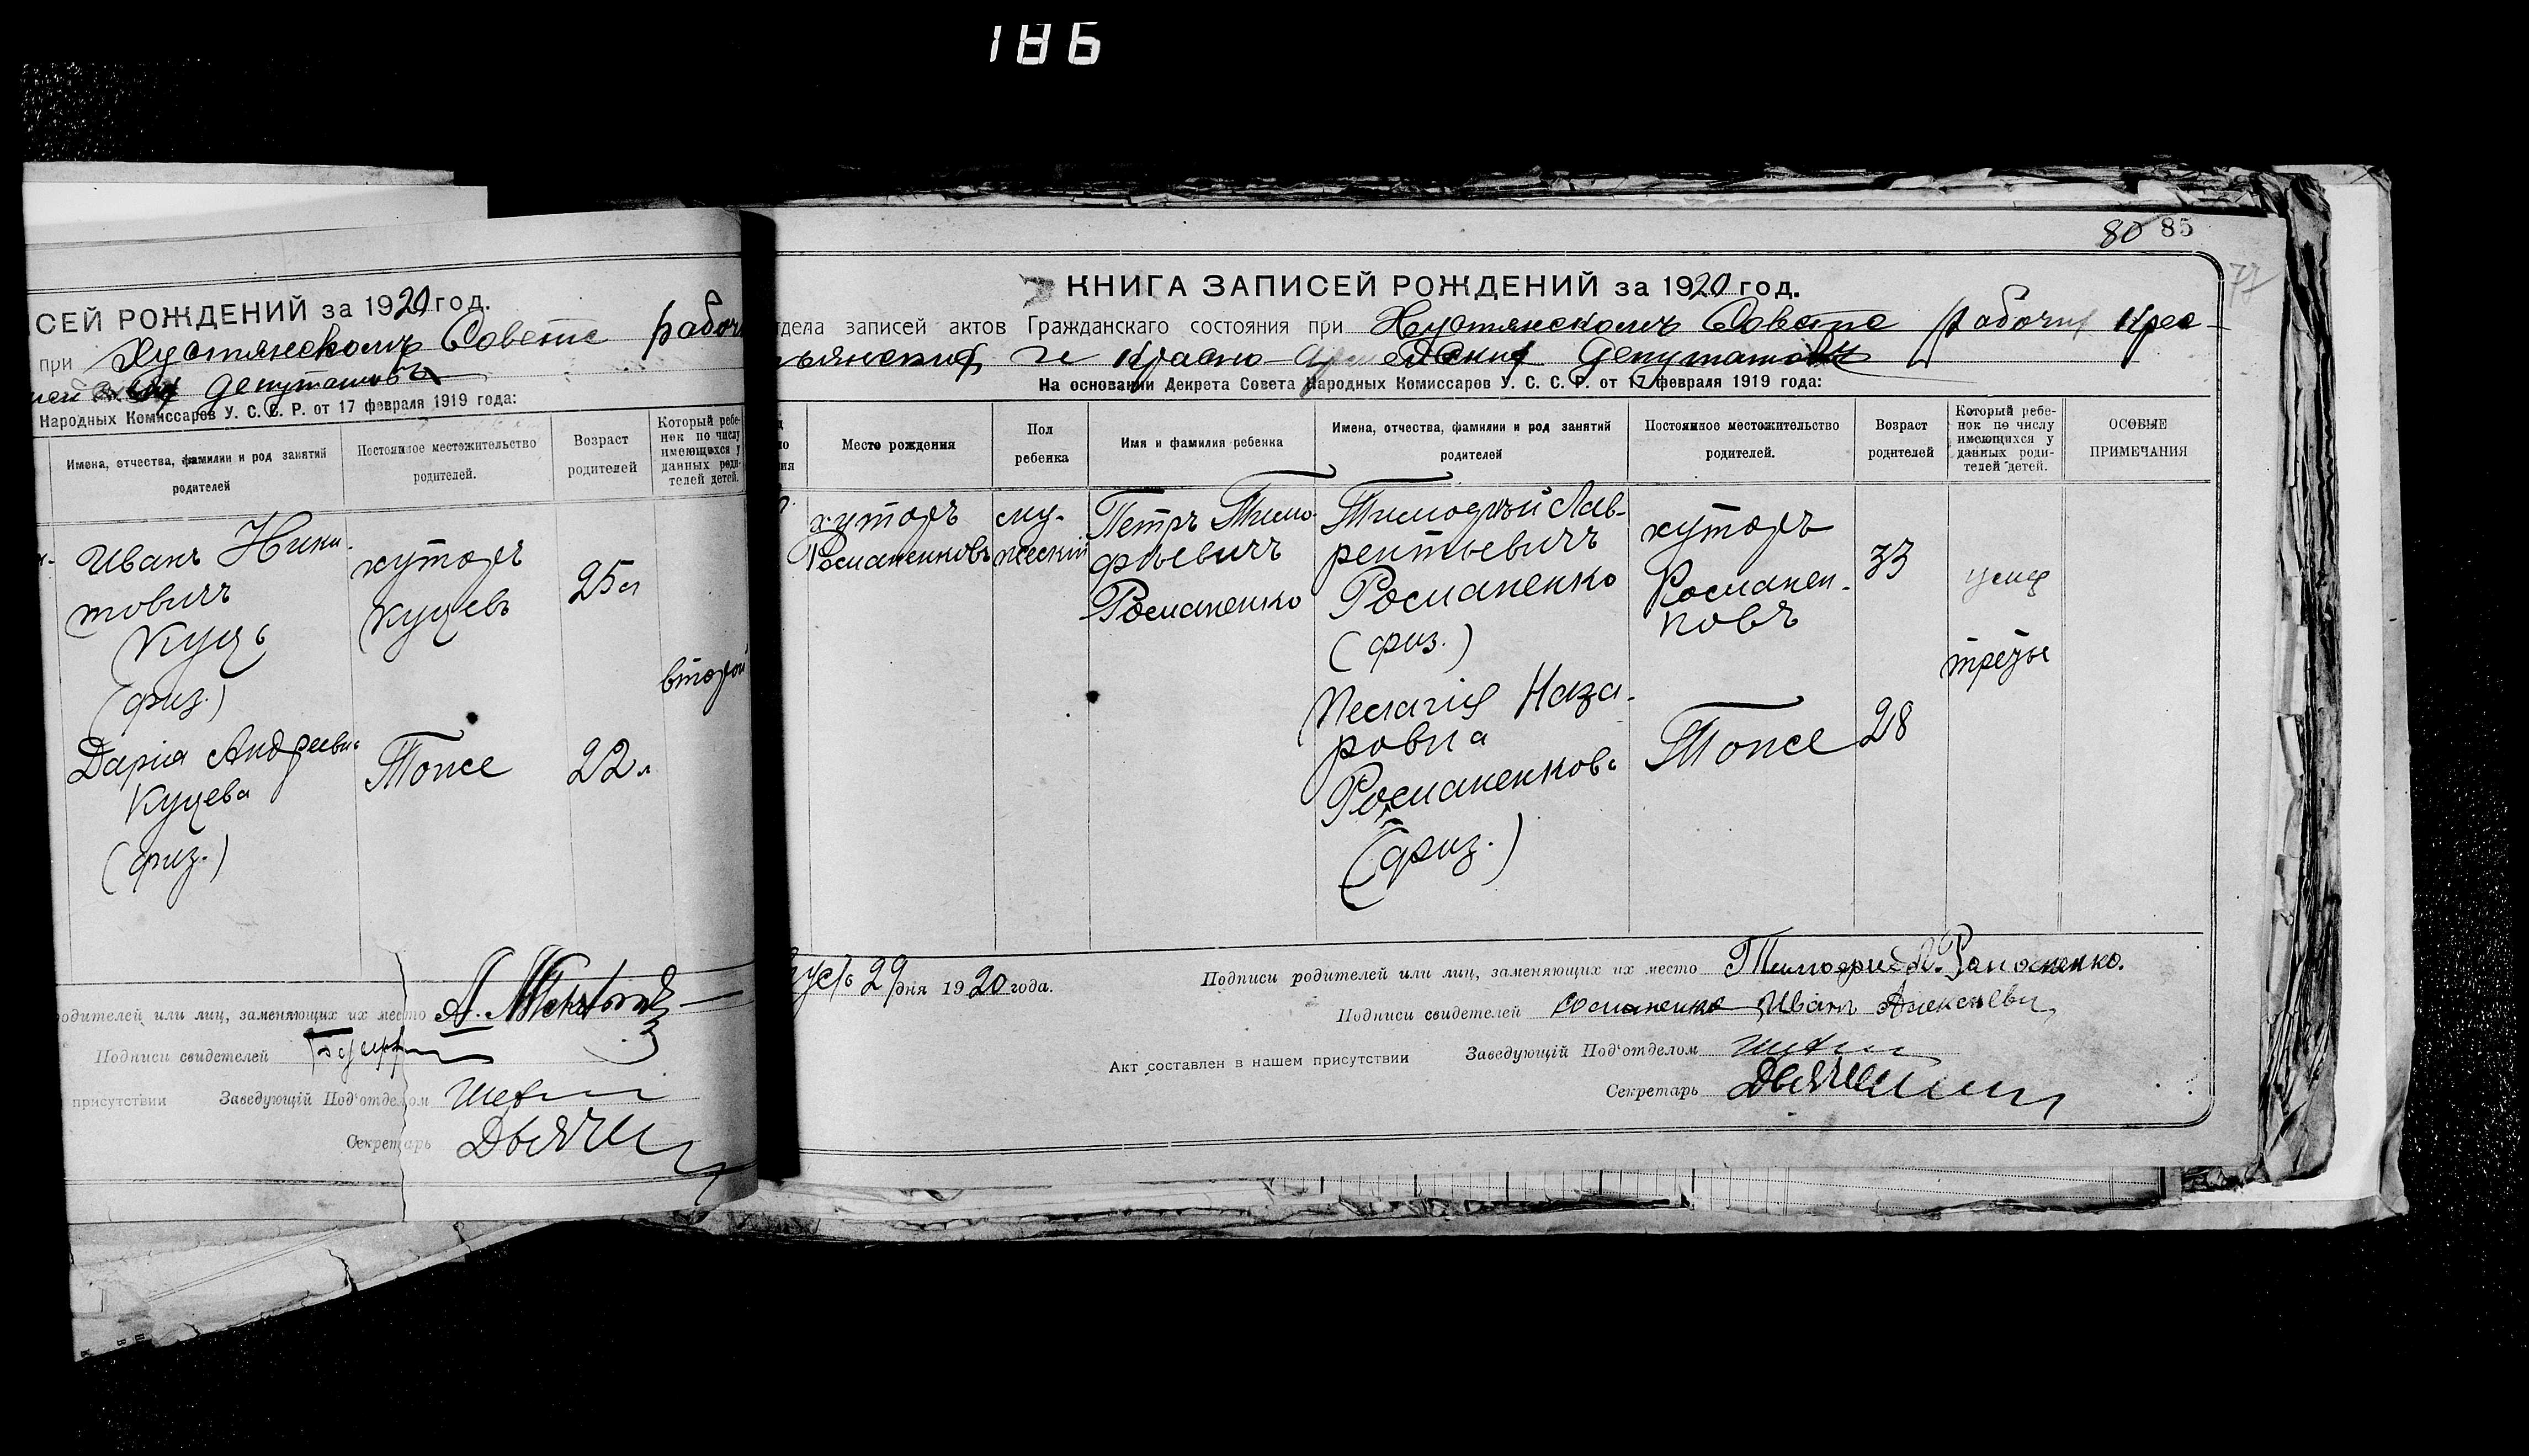 186
СЕЙ РОЖДЕНИЙ за 1920 год.
при Хустянскомъ Совете рабоч
депутатовъ
Народных Комиссаров У. С. С. Р. от 17 февраля 1919 года:
Имена, отчества, фамилии и род занятий родителей
Постоянное местожительство родителей.
Возраст родителей
Который ребе-
нок по числу
имеющихся у
данных роди-
телей детей.
Иванъ Ники-
товичъ
Куцъ
(физ.)
Дарiя Андреевна
Куцева
(физ.)
хуторъ
Куцевъ
Тоже
25 л
22 л
второй
родителей или лиц, заменяющих их место
Подписи свидетелей
присутствии Заведующiй Под‘отделом
Секретарь
80 85
КНИГА ЗАПИСЕЙ РОЖДЕНИЙ за 1920 год.
тдела записей актов Гражданскаго состояния при Хустянскомъ Совете Рабочих Крес-
ьянских и Красно-Армейских Депутатовъ
На основании Декрета Совета Народных Комиссаров У. С. С. Р. от 17 февраля 1919 года:
Место рождения
Пол ребенка
Имя и фамилия ребенка
Имена, отчества, фамилии и род занятий родителей
Постоянное местожительство родителей.
Возраст родителей
Который ребе-
нок по числу
имеющихся у
данных роди-
телей детей.
ОСОБЫЕ ПРИМЕЧАНИЯ
хуторъ
Романенковъ
му-
жеский
Петръ Тимо-
фѣевичъ
Романенко
Тимофѣй Лав-
рентьевичъ
Романенко
(физ.)
Пелагiя Наза-
ровна
Романенкова
(физ.)
хуторъ
Романен-
ковъ
Тоже
33
28
29 дня 1920 года.
Подписи родителей или лиц, заменяющих их место Тимофий Л. Романенко.
Подписи свидетелей Романенко Иванъ
Акт составлен в нашем присутствии Заведующiй Под‘отделом
Секретарь